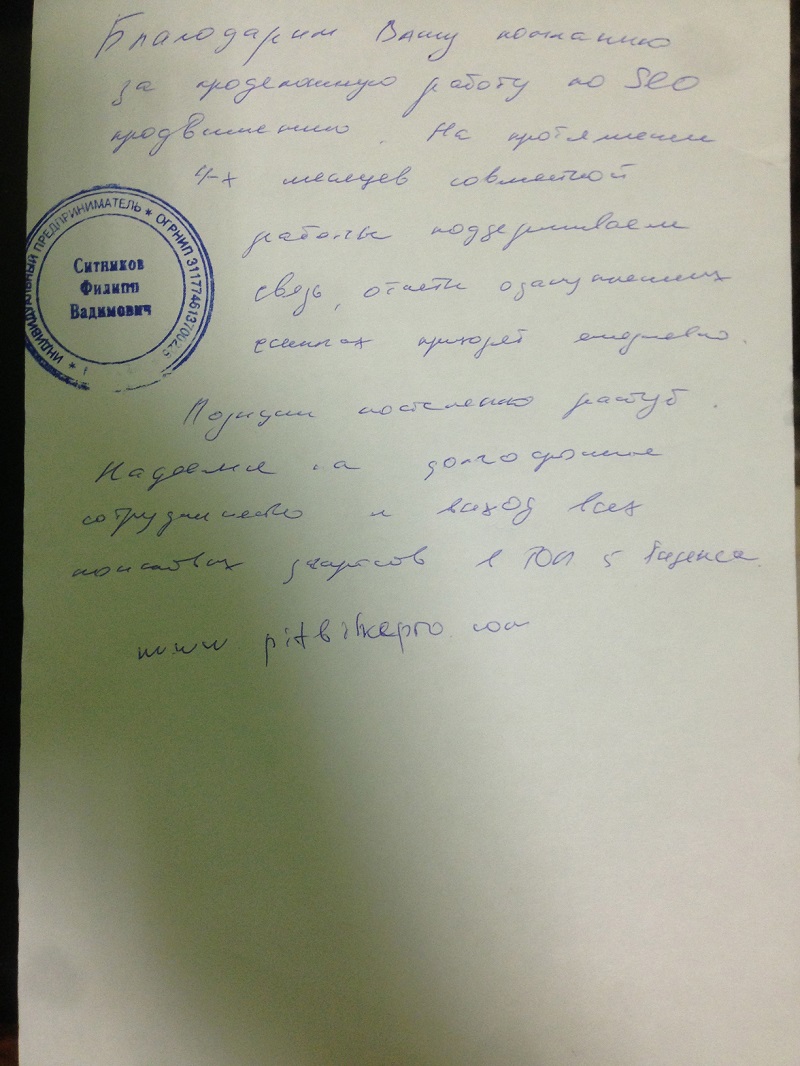 Благодарим Вашу компанию
за проделанную работу по SEO
продвижению. На протяжении
4-х месяцев совместной
работы поддерживаем
связь, отчеты о закупленных
ссылках приходят ежедневно.
Позиции постепенно растут.
Надеемся на долгосрочное
сотрудничество и выход всех
поисковых запросов в ТОП 5 Яндекса
www.pitbikepro.com
ИНДИВИДУАЛЬНЫЙ ПРЕДПРИНИМАТЕЛЬ * ОГРНИП
Ситников
Филипп
Вадимович